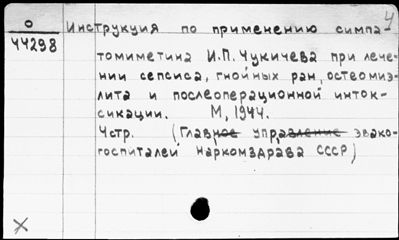 4
О
44298
Инструкция по применению симпа-
томиметина И.П. Чукичева при лече-
нии сепсиса, гнойных ран, остеомиэ-
лита и послеоперационной инток-
сикации. М, 1944.
4стр. (Главное управление эвако-
госпиталей Наркомздрава СССР)
X